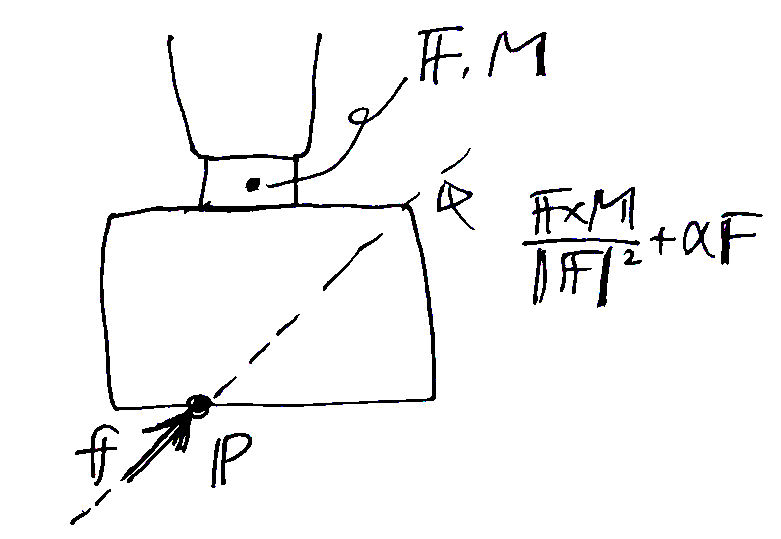 F, M
F×M
|F|² + αF
f
P